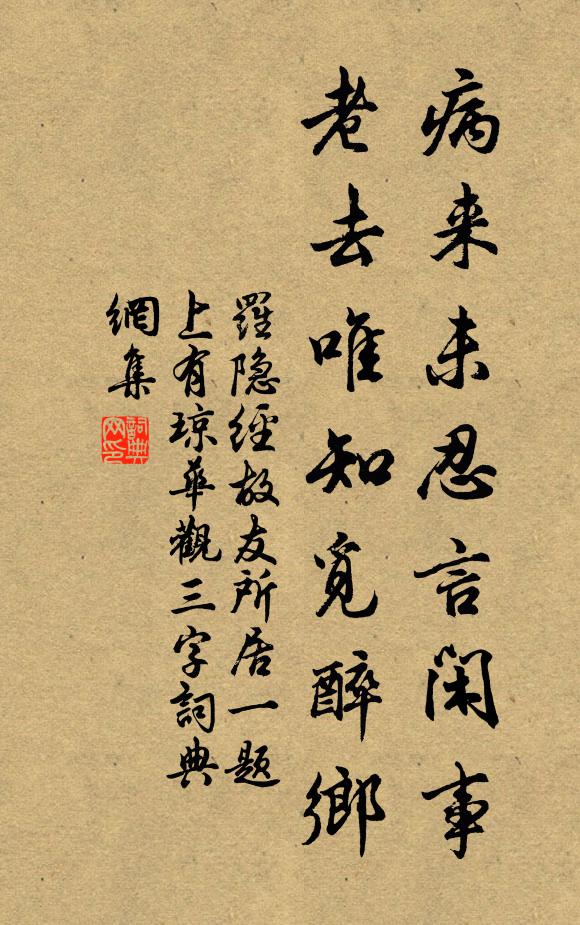 病来未忍言闲事
老去唯知觅醉鄉
羅隐經故友所居一题
上有琼華觀三字詞典
網集
詞典
网印